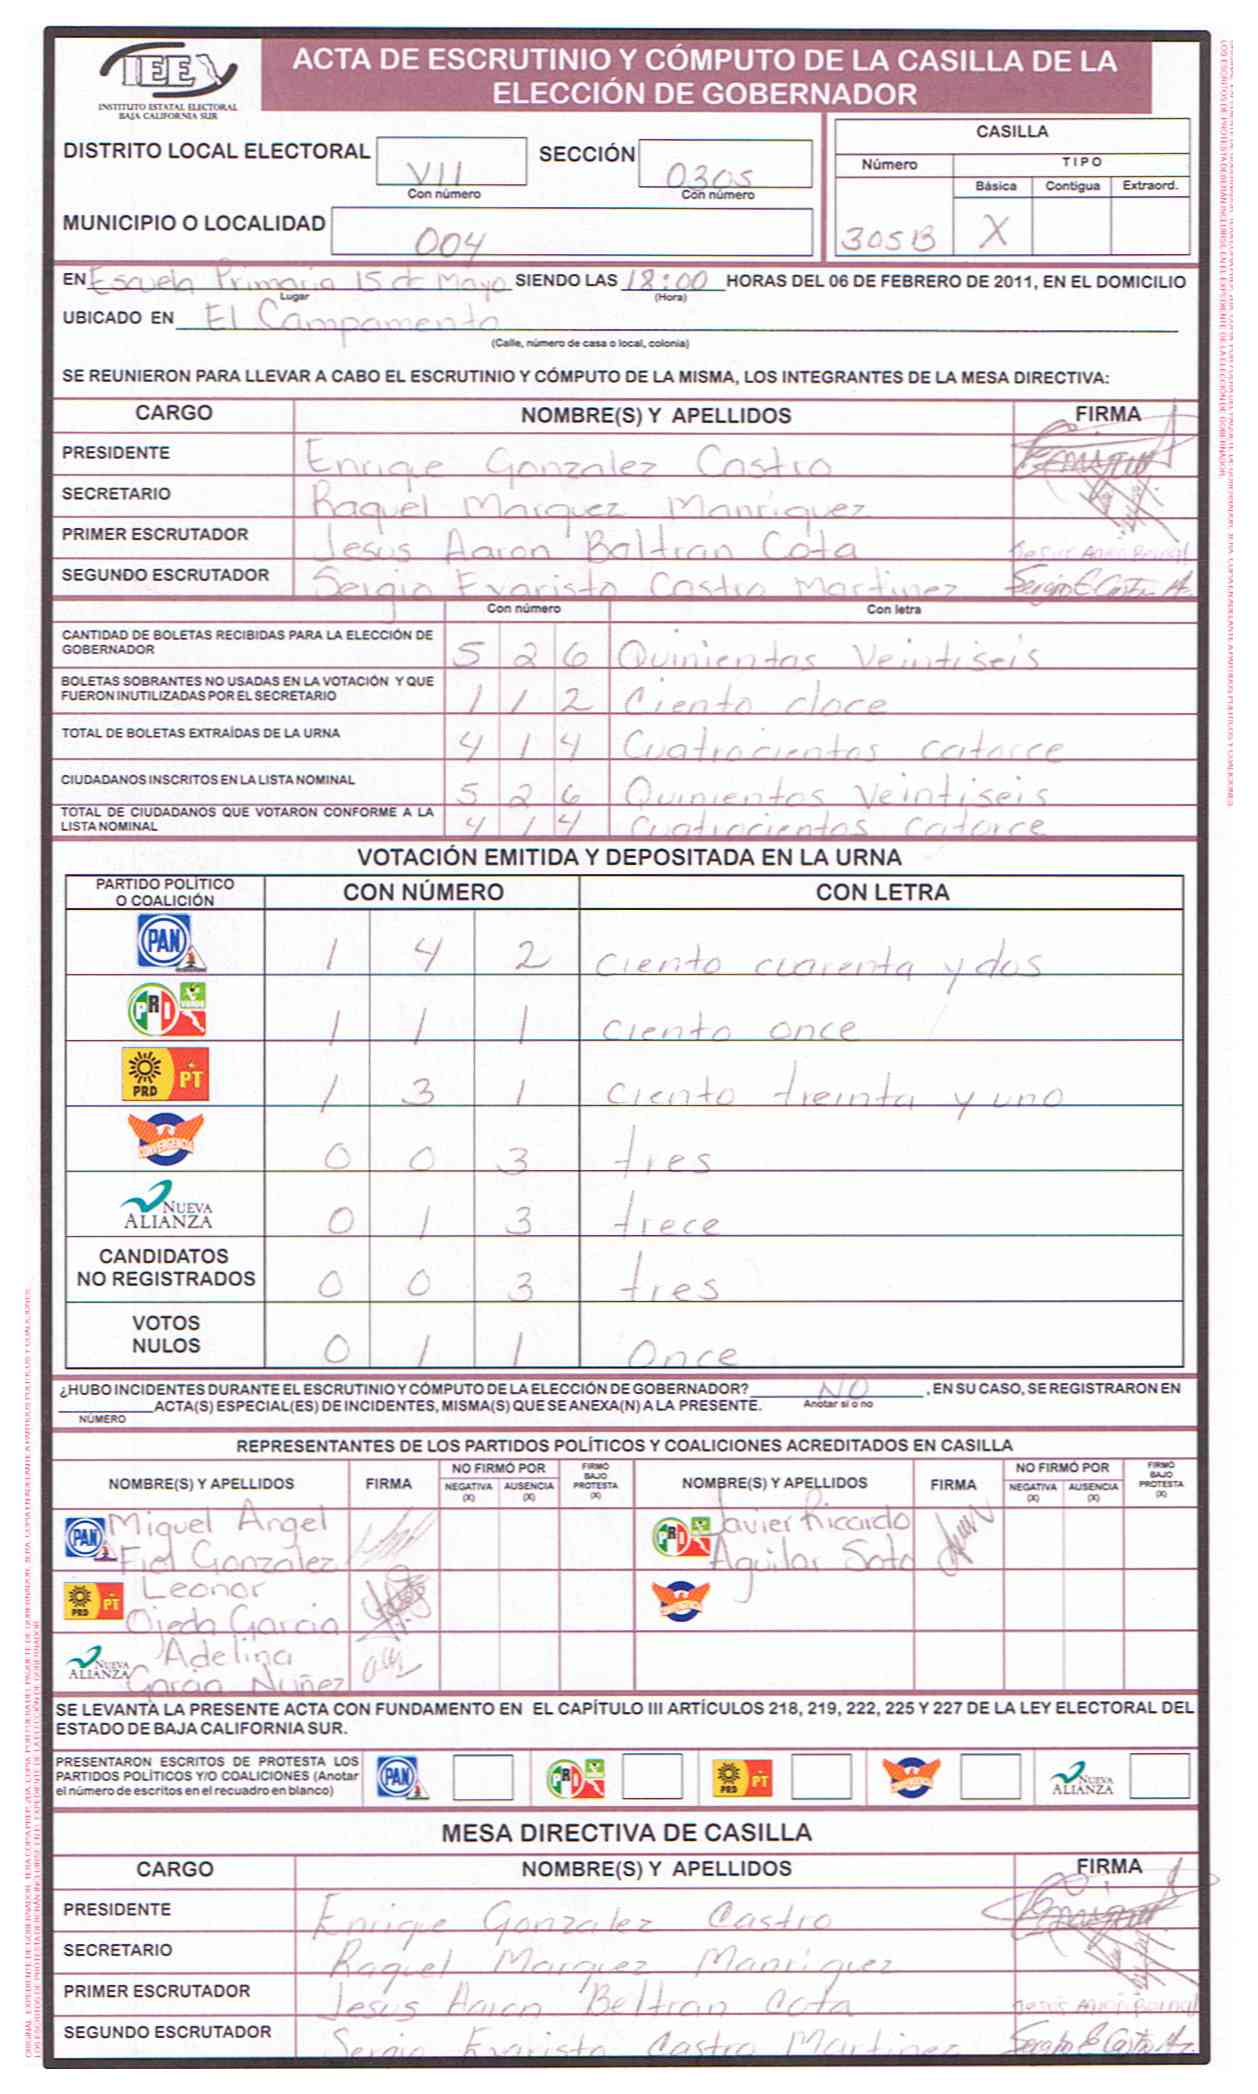 IEE
INSTITUTO ESTATAL ELECTORAL
BAJA CALIFORNIA SUR
ACTA DE ESCRUTINIO Y CÓMPUTO DE LA CASILLA DE LA
ELECCIÓN DE GOBERNADOR
DISTRITO LOCAL ELECTORAL VII SECCIÓN 0305
Con número Con número
MUNICIPIO O LOCALIDAD 004
CASILLA
Número TIPO
Básica Contigua Extraord.
305B X
EN Escuela Primaria 15 de Mayo SIENDO LAS 18:00 HORAS DEL 06 DE FEBRERO DE 2011, EN EL DOMICILIO
Lugar (Hora)
UBICADO EN El Campamento
(Calle, número de casa o local, colonia)
SE REUNIERON PARA LLEVAR A CABO EL ESCRUTINIO Y CÓMPUTO DE LA MISMA, LOS INTEGRANTES DE LA MESA DIRECTIVA:
CARGO NOMBRE(S) Y APELLIDOS FIRMA
PRESIDENTE Enrique Gonzalez Castro
SECRETARIO Raquel Marquez Manriquez
PRIMER ESCRUTADOR Jesus Aaron Baltran Cota
SEGUNDO ESCRUTADOR Sergio Evaristo Castro Martinez
Con número Con letra
CANTIDAD DE BOLETAS RECIBIDAS PARA LA ELECCIÓN DE
GOBERNADOR 5 2 6 Quinientos Veintiseis
BOLETAS SOBRANTES NO USADAS EN LA VOTACIÓN Y QUE
FUERON INUTILIZADAS POR EL SECRETARIO 1 1 2 Ciento doce
TOTAL DE BOLETAS EXTRAÍDAS DE LA URNA 4 1 4 Cuatrocientos catorce
CIUDADANOS INSCRITOS EN LA LISTA NOMINAL 5 2 6 Quinientos Veintiseis
TOTAL DE CIUDADANOS QUE VOTARON CONFORME A LA
LISTA NOMINAL 4 1 4 Cuatrocientos catorce
VOTACIÓN EMITIDA Y DEPOSITADA EN LA URNA
PARTIDO POLÍTICO
O COALICIÓN CON NÚMERO CON LETRA
PAN 1 4 2 ciento cuarenta y dos
PRI VERDE 1 1 1 ciento once
PRD PT 1 3 1 ciento treinta y uno
CONVERGENCIA 0 0 3 tres
NUEVA
ALIANZA 0 1 3 trece
CANDIDATOS
NO REGISTRADOS 0 0 3 tres
VOTOS
NULOS 0 1 1 Once
¿HUBO INCIDENTES DURANTE EL ESCRUTINIO Y CÓMPUTO DE LA ELECCIÓN DE GOBERNADOR? NO , EN SU CASO, SE REGISTRARON EN
ACTA(S) ESPECIAL(ES) DE INCIDENTES, MISMA(S) QUE SE ANEXA(N) A LA PRESENTE. Anotar sí o no
NÚMERO
REPRESENTANTES DE LOS PARTIDOS POLÍTICOS Y COALICIONES ACREDITADOS EN CASILLA
NOMBRE(S) Y APELLIDOS FIRMA NO FIRMÓ POR NEGATIVA (X) AUSENCIA (X) FIRMÓ BAJO PROTESTA (X) NOMBRE(S) Y APELLIDOS FIRMA NO FIRMÓ POR NEGATIVA (X) AUSENCIA (X) FIRMÓ BAJO PROTESTA (X)
PAN Miguel Angel
Fiol Gonzalez
PRI Javier Ricardo
Aguilar Soto
PRD PT Leonor
Ojeda Garcia
NUEVA ALIANZA Adelina
Garcia Nuñez
SE LEVANTA LA PRESENTE ACTA CON FUNDAMENTO EN EL CAPÍTULO III ARTÍCULOS 218, 219, 222, 225 Y 227 DE LA LEY ELECTORAL DEL
ESTADO DE BAJA CALIFORNIA SUR.
PRESENTARON ESCRITOS DE PROTESTA LOS
PARTIDOS POLÍTICOS Y/O COALICIONES (Anotar
el número de escritos en el recuadro en blanco) PAN PRI PRD PT NUEVA ALIANZA
MESA DIRECTIVA DE CASILLA
CARGO NOMBRE(S) Y APELLIDOS FIRMA
PRESIDENTE Enrique Gonzalez Castro
SECRETARIO Raquel Marquez Manriquez
PRIMER ESCRUTADOR Jesus Aaron Beltran Cota
SEGUNDO ESCRUTADOR Sergio Evaristo Castro Martinez